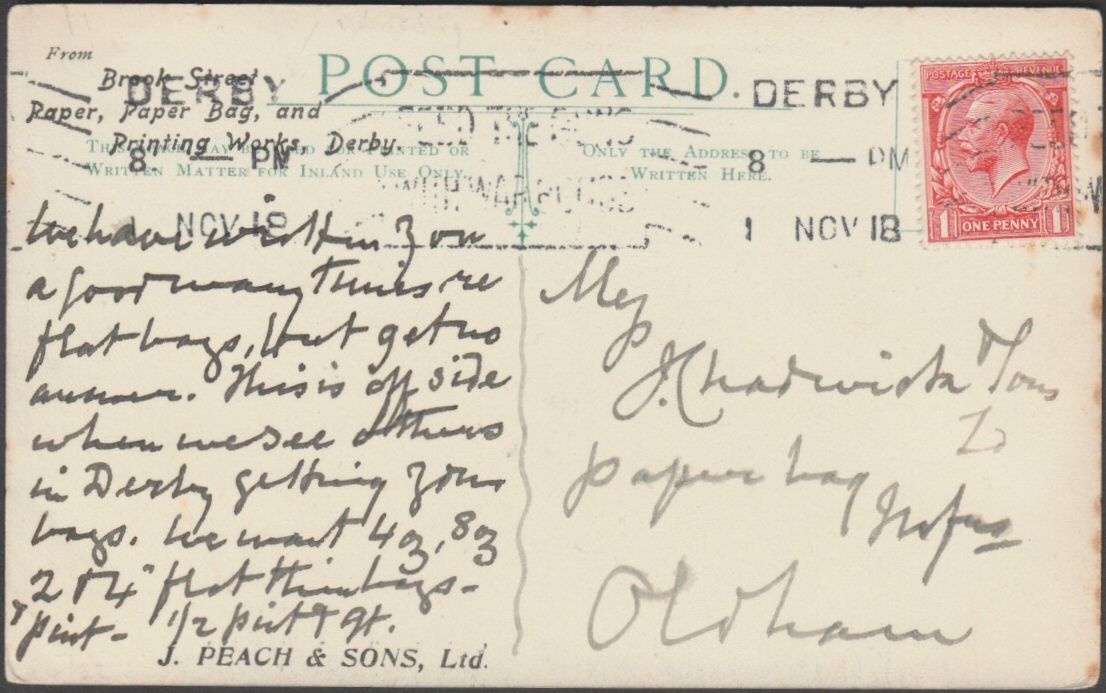 From
Brook Street
Paper, Paper Bag, and
Printing Works, Derby.
POST CARD.
THIS SPACE MAY BE USED FOR PRINTED OR
WRITTEN MATTER FOR INLAND USE ONLY.
ONLY THE ADDRESS TO BE
WRITTEN HERE.
DERBY
8 — PM
1 NOV 18
FEED THE GUNS
WITH WAR BONDS
DERBY
8 — PM
1 NOV 18
POSTAGE REVENUE
1 ONE PENNY 1
We have written you
a good many times re
flat bags, but get no
answer. This is off side
when we see others
in Derby getting your
bags. We want 4oz, 8oz
2 & 4 flat thin bags -
pint - 1/2 pint & qt.
J. PEACH & SONS, Ltd.
Mes
J Chadwick & Sons
Ld
paper bag Mnfrs
Oldham